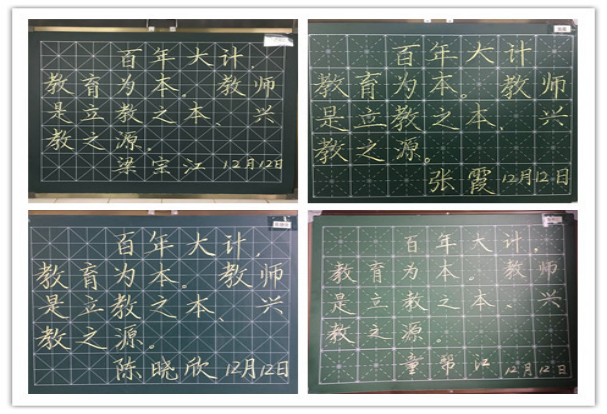 百年大计，
教育为本。教师
是立教之本、兴
教之源。
梁宝江 12月12日
百年大计，
教育为本。教师
是立教之本、兴
教之源。
张霞 12月12日
百年大计，
教育为本。教师
是立教之本、兴
教之源。
陈晓欣 12月12日
百年大计，
教育为本。教师
是立教之本、兴
教之源。
童帮江 12月12日